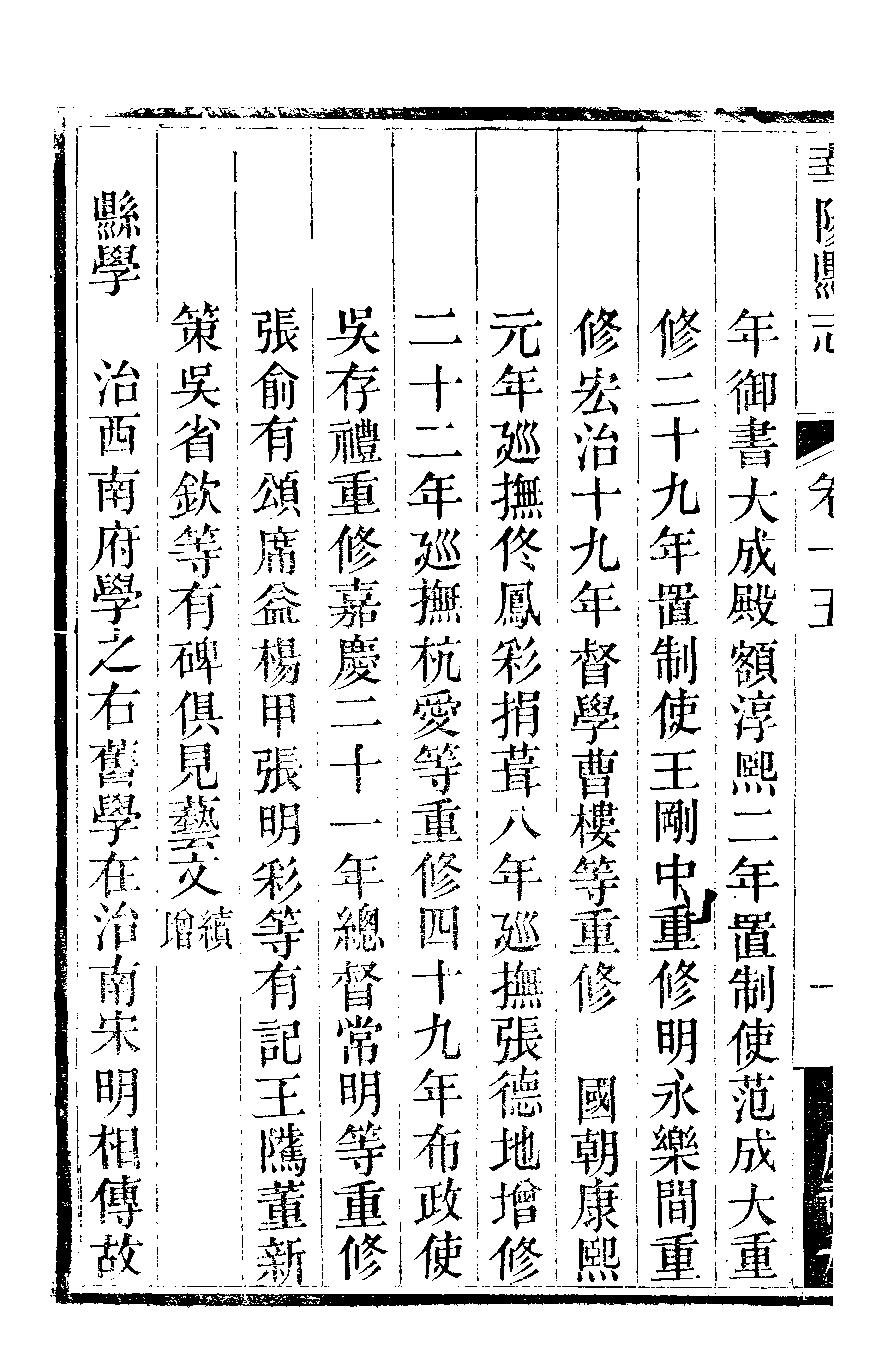 華陽縣志 卷十五
年御書大成殿額淳熙二年置制使范成大重
修二十九年置制使王剛中重修明永樂間重
修宏治十九年督學曹樓等重修 國朝康熙
元年廵撫佟鳳彩捐葺八年廵撫張德地增修
二十二年廵撫杭愛等重修四十九年布政使
吳存禮重修嘉慶二十一年總督常明等重修
張俞有頌席益楊甲張明彩等有記王騰董新
策吳省欽等有碑俱見藝文續增
縣學 治西南府學之右舊學在治南宋明相傳故